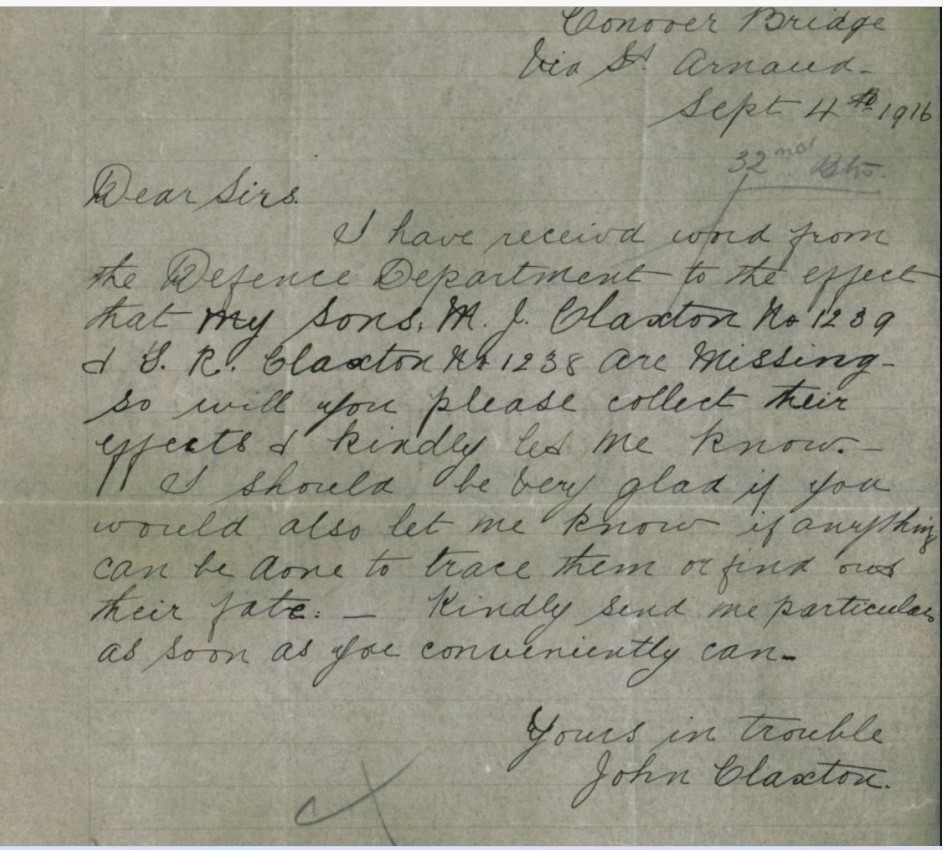 Conover Bridge
Via St. Arnaud-
Sept 4th 1916
32nd Btn.
Dear Sirs.
I have receivd word from
the Defence Department to the effect
that my sons, M. J. Claxton No 1239
& S. R. Claxton No 1238 are Missing-
so will you please collect their
effects & kindly let me know.-
I should be very glad if you
would also let me know if anything
can be done to trace them or find out
their fate. - Kindly send me particulars
as soon as you conveniently can-
Yours in trouble
John Claxton.